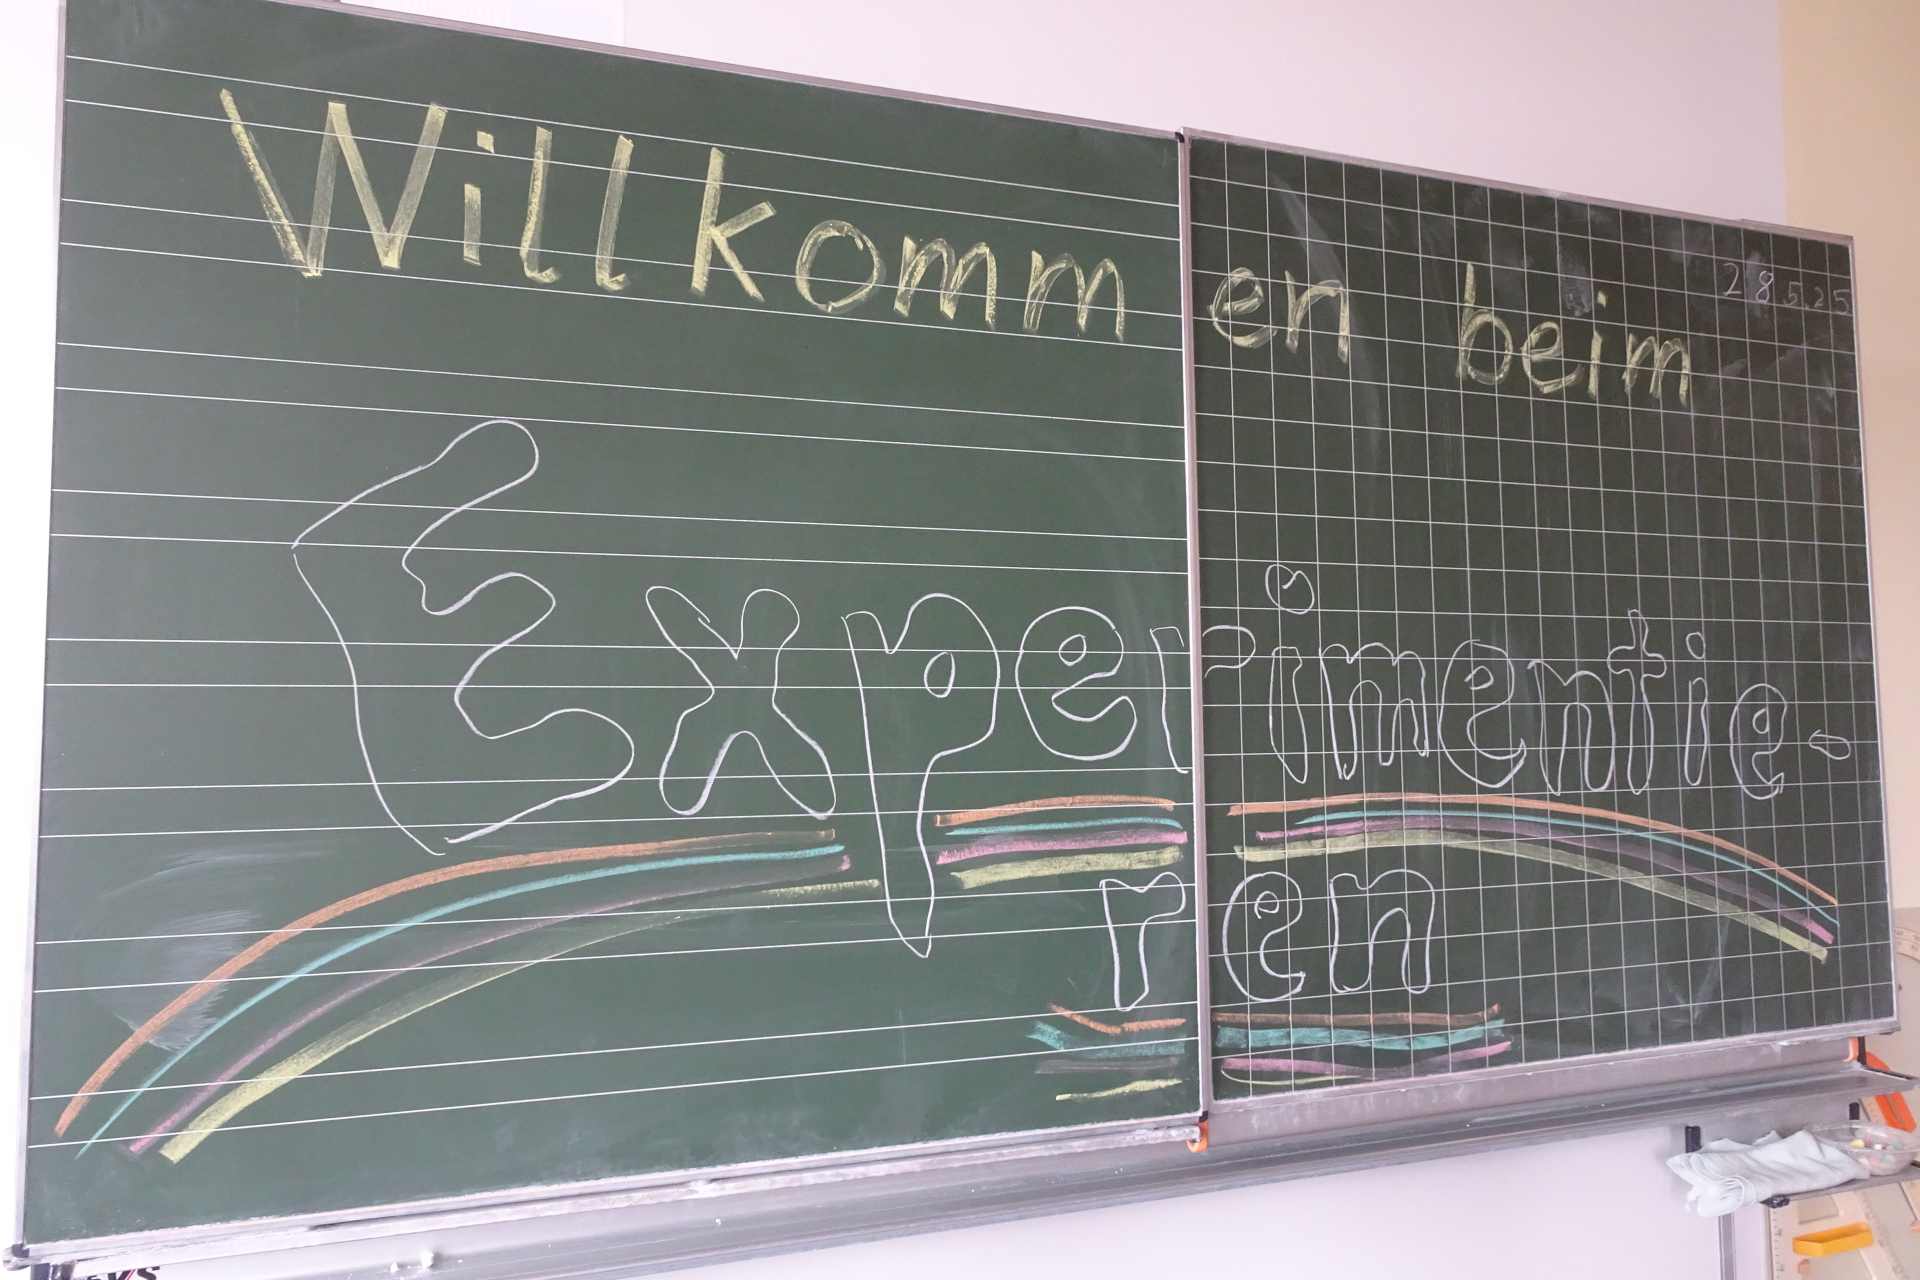 Willkommen beim
28.5.25
Experimentie-
ren